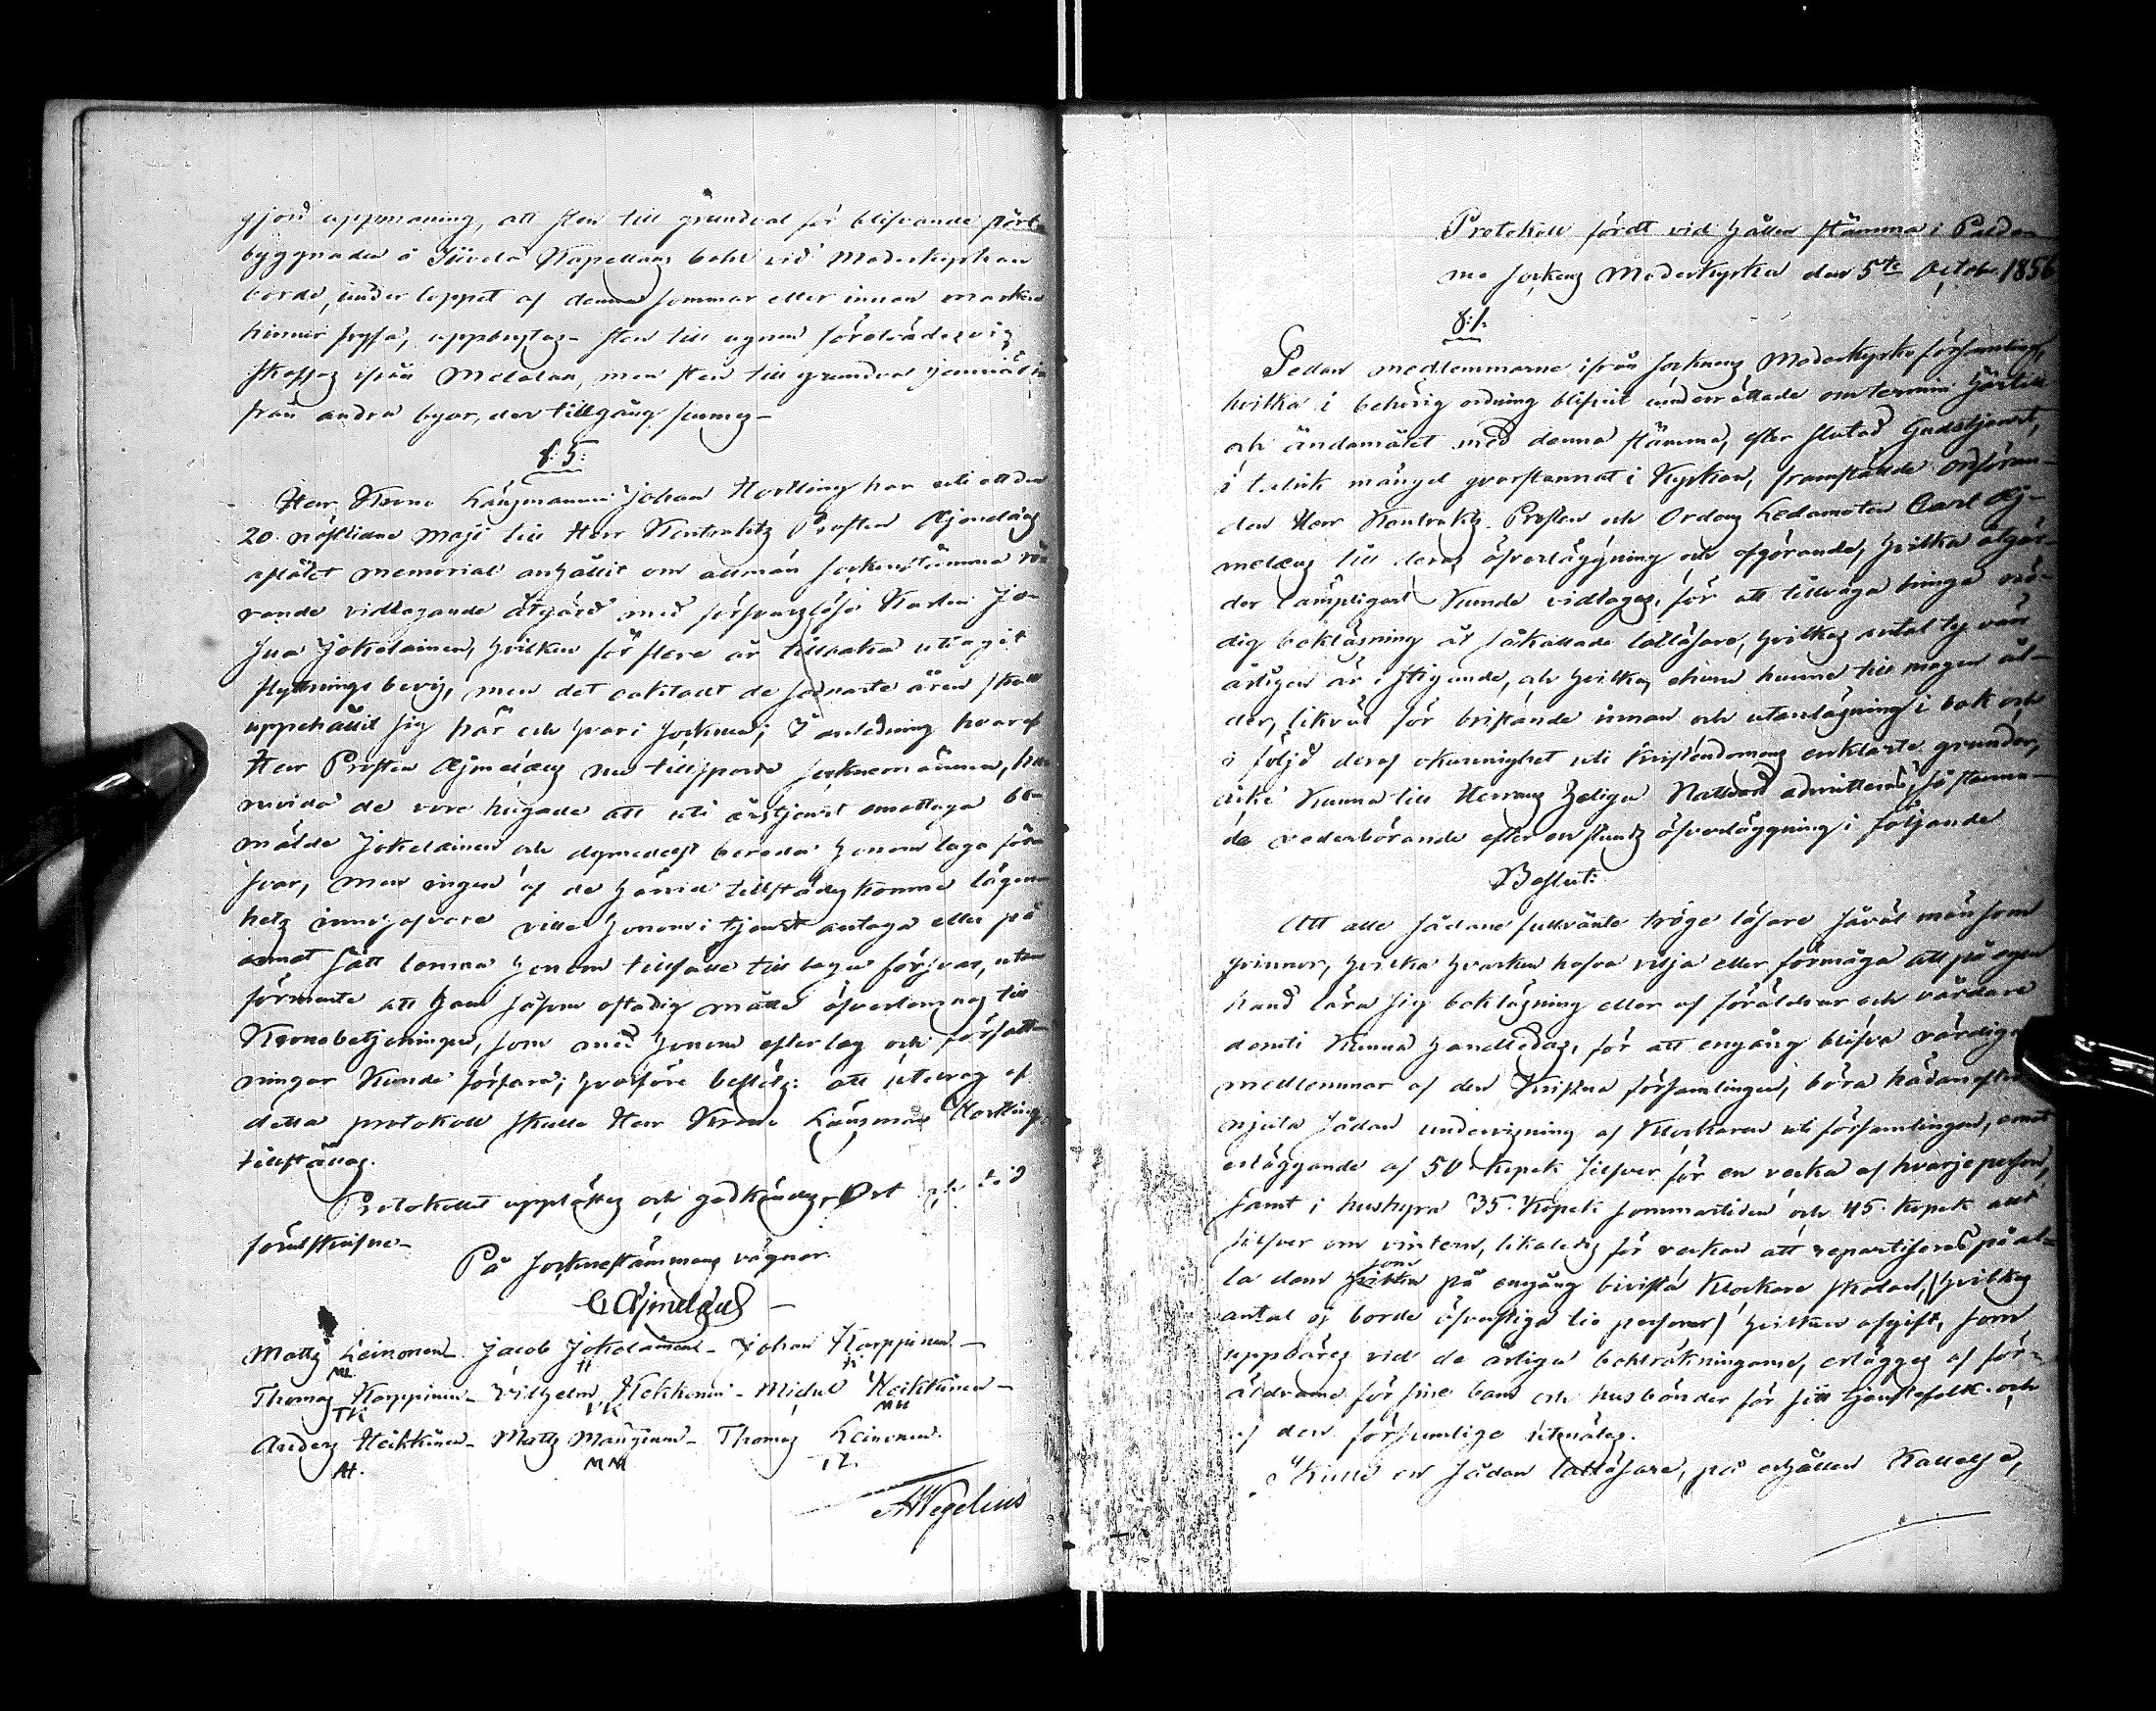 gjord uppmaning, att sten till grundval för blifvande pört
byggnaden å Kapellans bohl vid Moderkyrkan
borde, under loppet af denna sommar eller innan marken
hinner frysa, uppbrytas - sten till ugnen företrädesvis
skaffas ifrån Melalan, men sten till grundval jemväl
från andra byar, der tillgång finnes -
§. 5.
Herr Krono Länsmannen Johan Hortling har uti ett den
20. nästlidne Maji till Herr Kontrakts Prosten Ajmelæus
aflåtet memorial anhållit om allmän sockenstämma rö-
rande vidtagande åtgärd med försvarslöse Karlen
Jokelainen, hvilken för flere år tillbaka uttagit
flyttnings bevis, men det oaktadt de senaste åren
uppehållit sig här och hvar i socknen; I anledning hvaraf
Herr Prosten Ajmelæus nu tillsporde sockenemännen, hu-
ruvida de vore hugade att uti årstjenst emottaga be-
mälde Jokelainen och dymedelst bereda honom laga för-
svar, men ingen af de härvid tillstädeskomne lägen-
hets innehafvare ville honom i tjenst antaga eller på
annat sätt lemna honom tillfälle till laga försvar, utan
förmente att han såsom ostadig måtte öfverlemnas till
Kronobetjeningen, som med honom efter lag och författ-
ningar kunde förfara; hvarföre beslöts: att utdrag af
detta protokoll skulle Herr Krono Länsman Hortling
tillställas.
Protokollet upplästes och godkändes, Ort och tid
förutskrifne -
På sockenestämmans vägnar
C Ajmelæus -
Matts Leinonen - Jacob Jokelainen - Johan Karppinen -
ML JJ K
Thomas Karppinen - Vilhelm Kekkonen - Michel Heikkinen -
TK VK MH
Anders Heikkinen - Matts Manginen - Thomas Leinonen.
AH. MM TL.
AWegelius
Protokoll fördt vid hållen stämma i Palda-
mo Sockens Moderkyrka den 5te Octob. 1856
§. 1.
Sedan medlemmarne ifrån Socknens Moderkyrko församling,
hvilka i behörig ordning blifvit underrättade om termin härtill
och ändamålet med denna stämma, efter slutad Gudstjenst,
i talrik mängd qvarstannat i Kyrkan, framstälde ordföran-
den Herr Kontrakts Prosten och Ordens Ledamoten Carl Aj-
melæus till deras öfverläggning och afgörande, hvilka åtgär-
der lämpligast kunde vidtagas, för att tillväga bringa nö-
dig bokläsning åt såkallade lättläsare, hvilkas antal ty värr
årligen är i stigande, och hvilka, ehuru hunne till mogen ål-
der, likväl för bristande innan och utanläsning i bok och
i följd deraf okunnighet uti Kristendomens enklaste grunder,
icke kunna till Herrans Heliga Nattvard admitteras, så stanna-
de vederbörande efter en stunds öfverläggning i följande
Beslut:
Att alle sådane fullvänte tröge läsare såväl män som
qvinnor, hvilka hvarken hafva vilja eller förmåga att på egen
hand lära sig bokläsning eller af föräldrar och vårdare
deruti kunna handledas, för att engång blifva värdiga
medlemmar af den Kristna församlingen, böra hädanefter
njuta sådan undervisning af Klockaren uti församlingen, emot
erläggande af 50 kopek silfver för en vecka af hvarje person,
samt i hushyra 35. kopek sommartiden och 45. kopek allt
silfver om vintern, likaledes för veckan att repartiseras på al-
la dem hvilka som på engång bivista Klockare skolan, (hvilkas
antal ej borde öfverstiga tio personer) hvilken afgift, som
uppbäres vid de årliga bokträkningarne, erlägges af för-
äldrarne för sine barn och husbönder för sitt tjenstefolk och
af den försumlige utmätas.
Skulle en sådan lättläsare, på erhållen Kallelse,